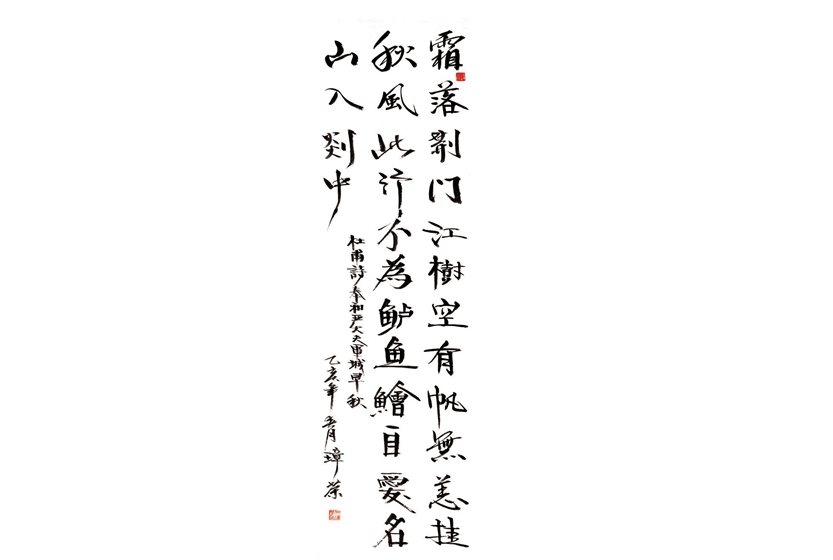 霜落荆门江樹空有帆無恙挂
秋風此行不為鲈鱼鱠自愛名
山入剡中
杜甫詩奉和严大夫軍城早秋
乙亥年 月璋荣